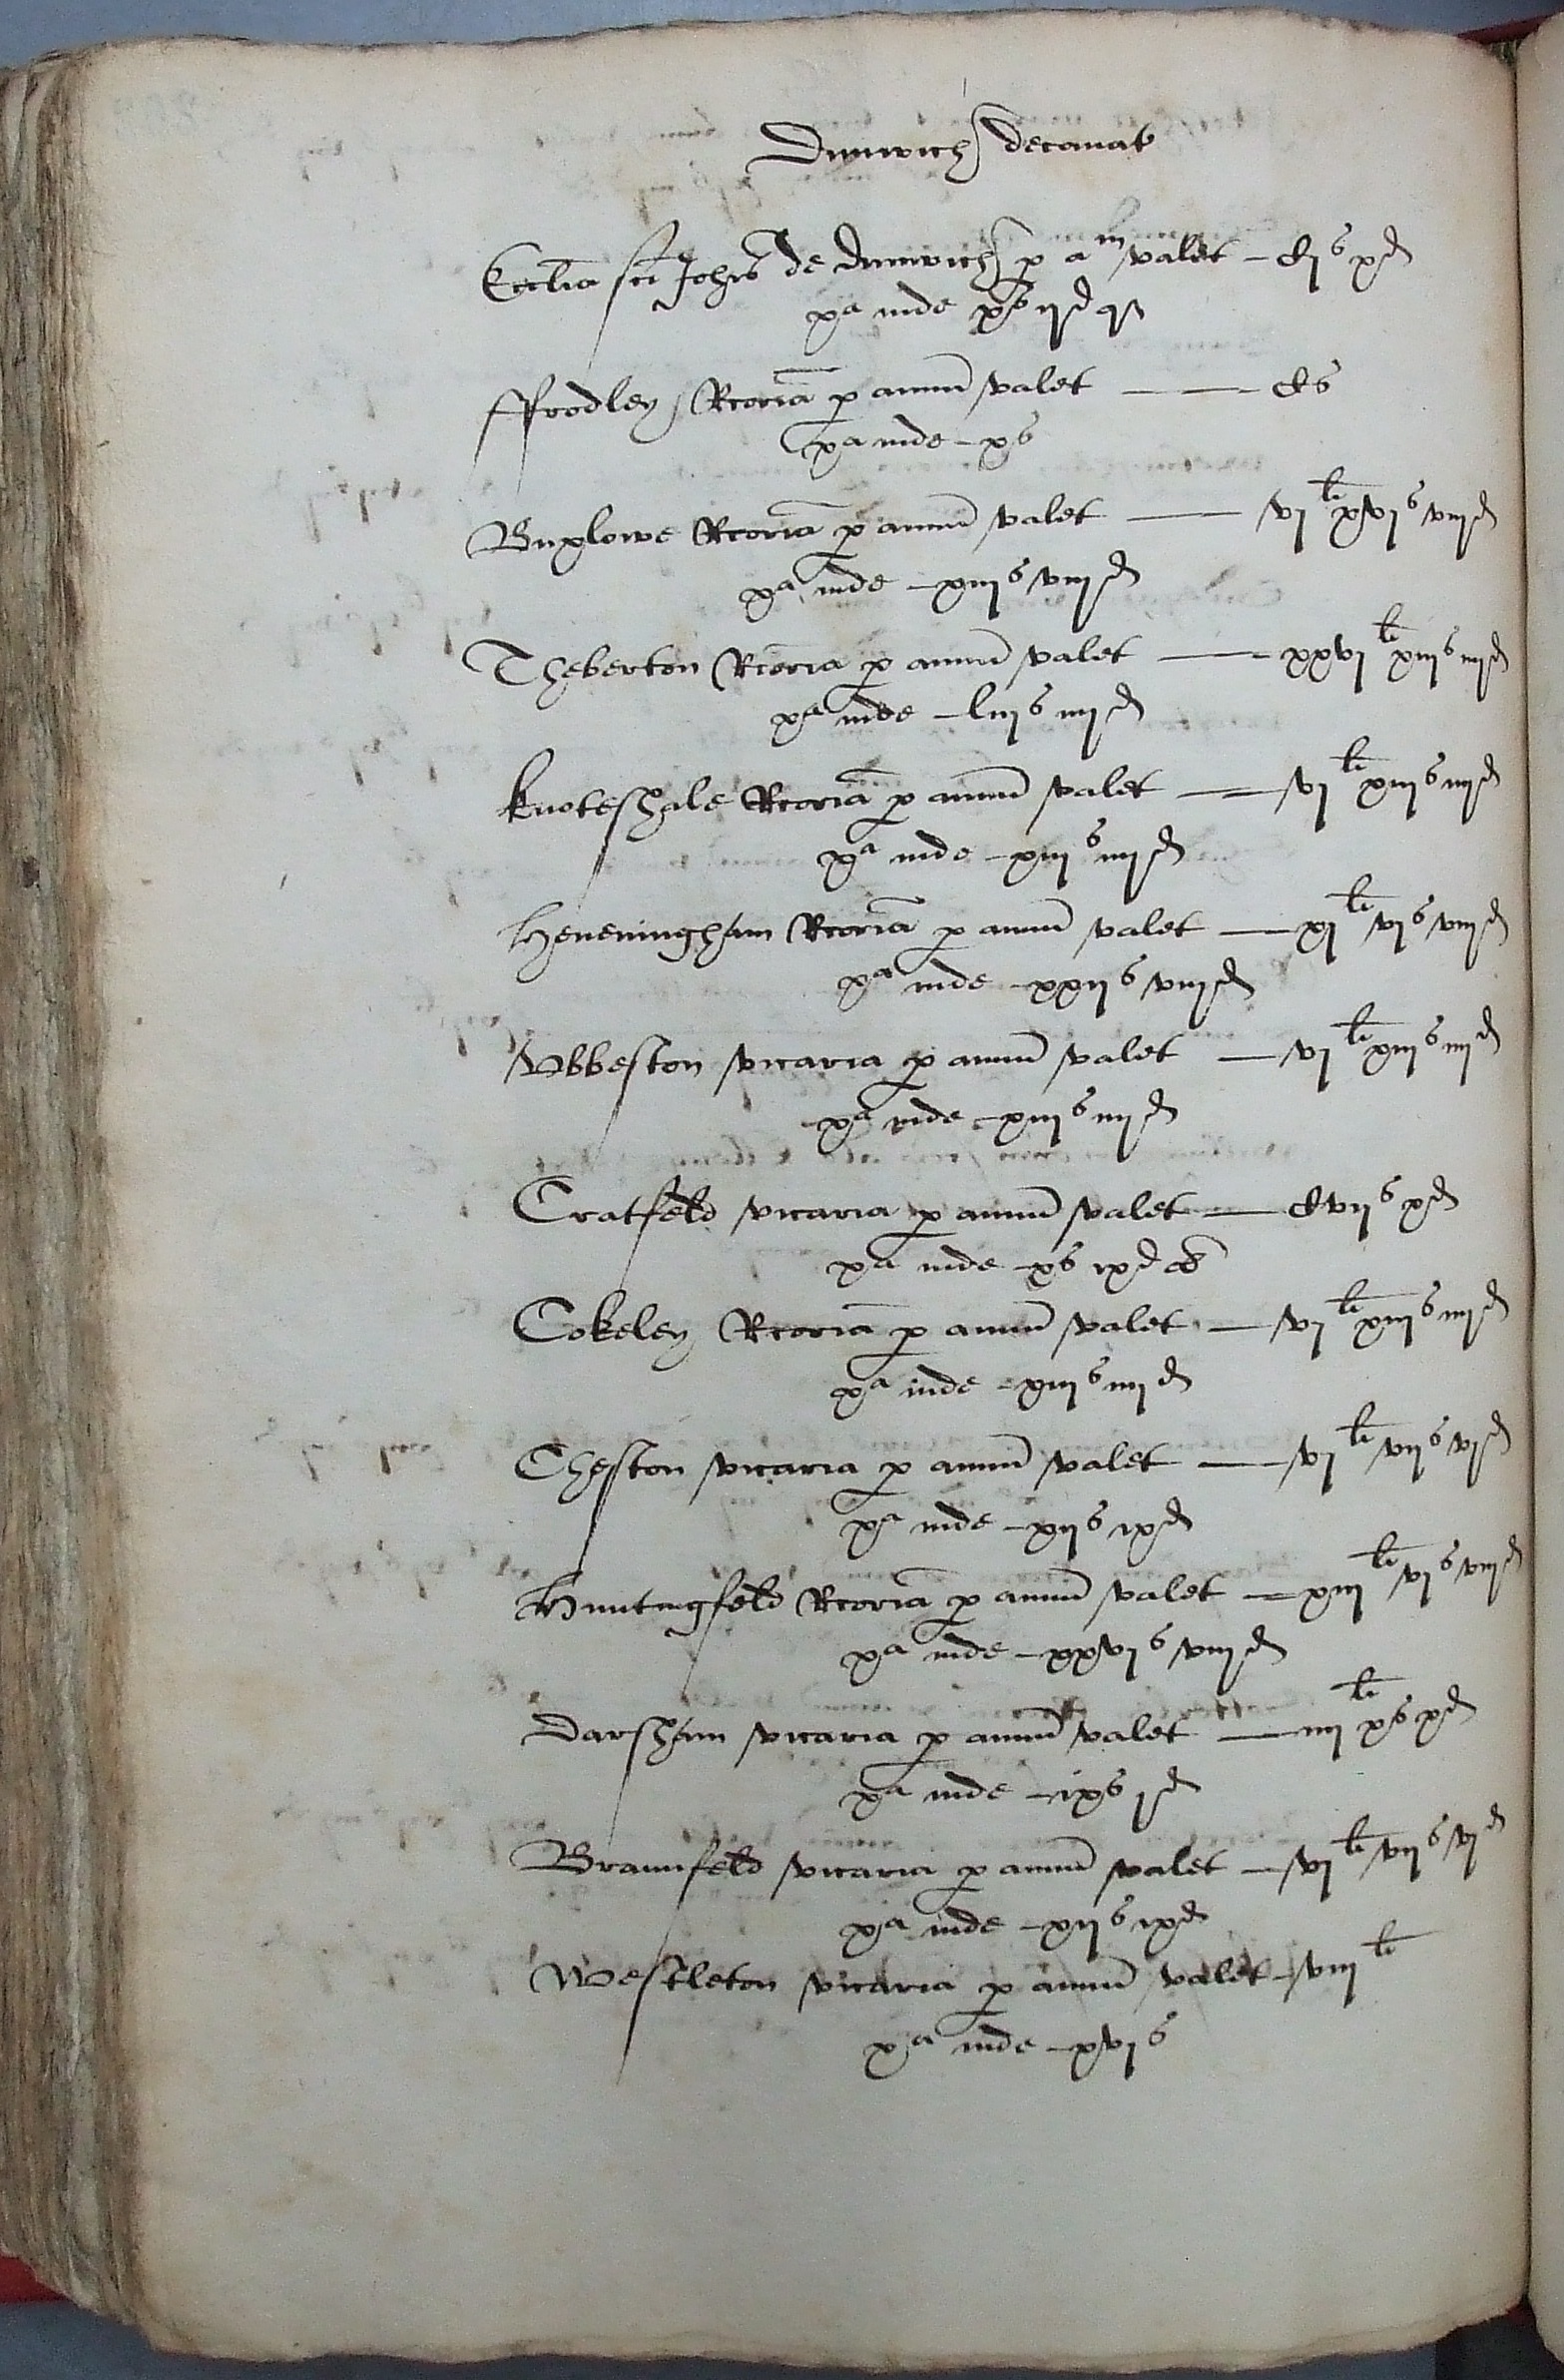 Dunwich decanat
Ecclia sci Johis de Dunwich p am valet – cijs xd
xa inde xs ijd q
ffrodley Rcoria p annu valet – cs
xa inde – xs
Buxlowe Rcoria p annu valet – vjli xvjs viijd
xa inde – xiijs viijd
Theberton Rcoria p annu valet – xxvjli xiijs iiijd
xa inde – liijs iiijd
knoteshale Rcoria p annu valet – vjli xiijs iiijd
xa inde – xiijs iiijd
Heveningham Rcoria p annu valet – xjli vjs viijd
xa inde – xxijs viijd
Vbbeston vicaria p annu valet – vjli xiijs iiijd
xa inde – xiijs iiijd
Cratfeld vicaria p annu valet – cvijs xd
xa inde – xs ixd ob
Cokeley Rcoria p annu valet – vjli xiijs iiijd
xa inde – xiijs iiijd
Cheston vicaria p annu valet – vjli vijs vjd
xa inde – xijs ixd
Huntingfeld Rcoria p annu valet – xiijli vjs viijd
xa inde – xxvjs viijd
Darsham vicaria p annu valet – iiijli xs xd
xa inde – ixs jd
Bramfeld vicaria p annu valet – vjli vijs vjd
xa inde – xijs ixd
Westleton vicaria p annu valet – viijli
xa inde – xvjs